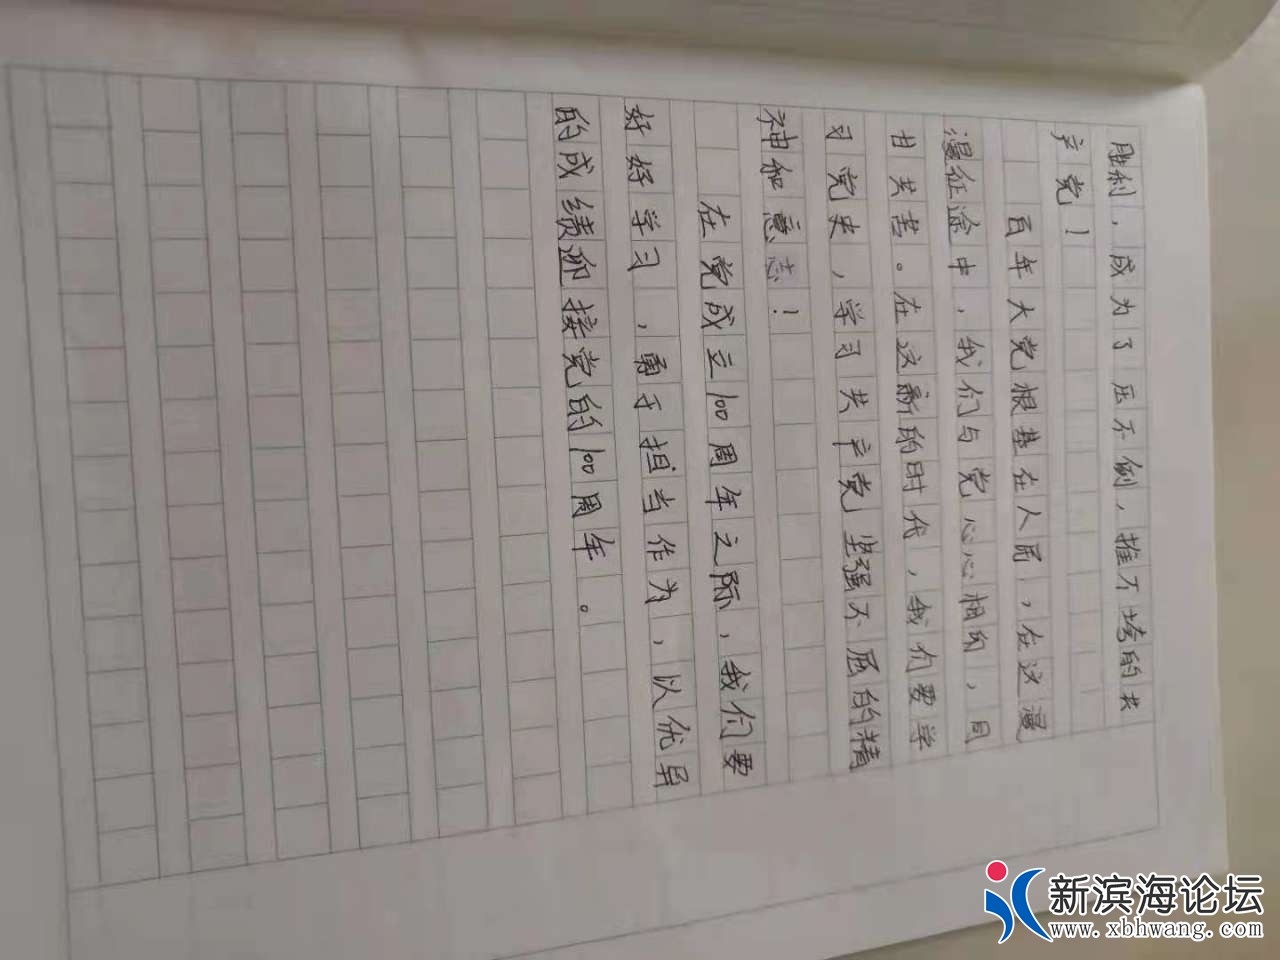 胜利，成为了压不倒，推不垮的共
产党！
百年大党根基在人民，在这漫
漫征途中，我们与党心心相印，同
甘共苦。在这新的时代，我们要学
习党史，学习共产党坚强不屈的精
神和意志！
在党成立100周年之际，我们要
好好学习，勇于担当作为，以优异
的成绩迎接党的100周年。
新滨海论坛
www.xbhwang.com